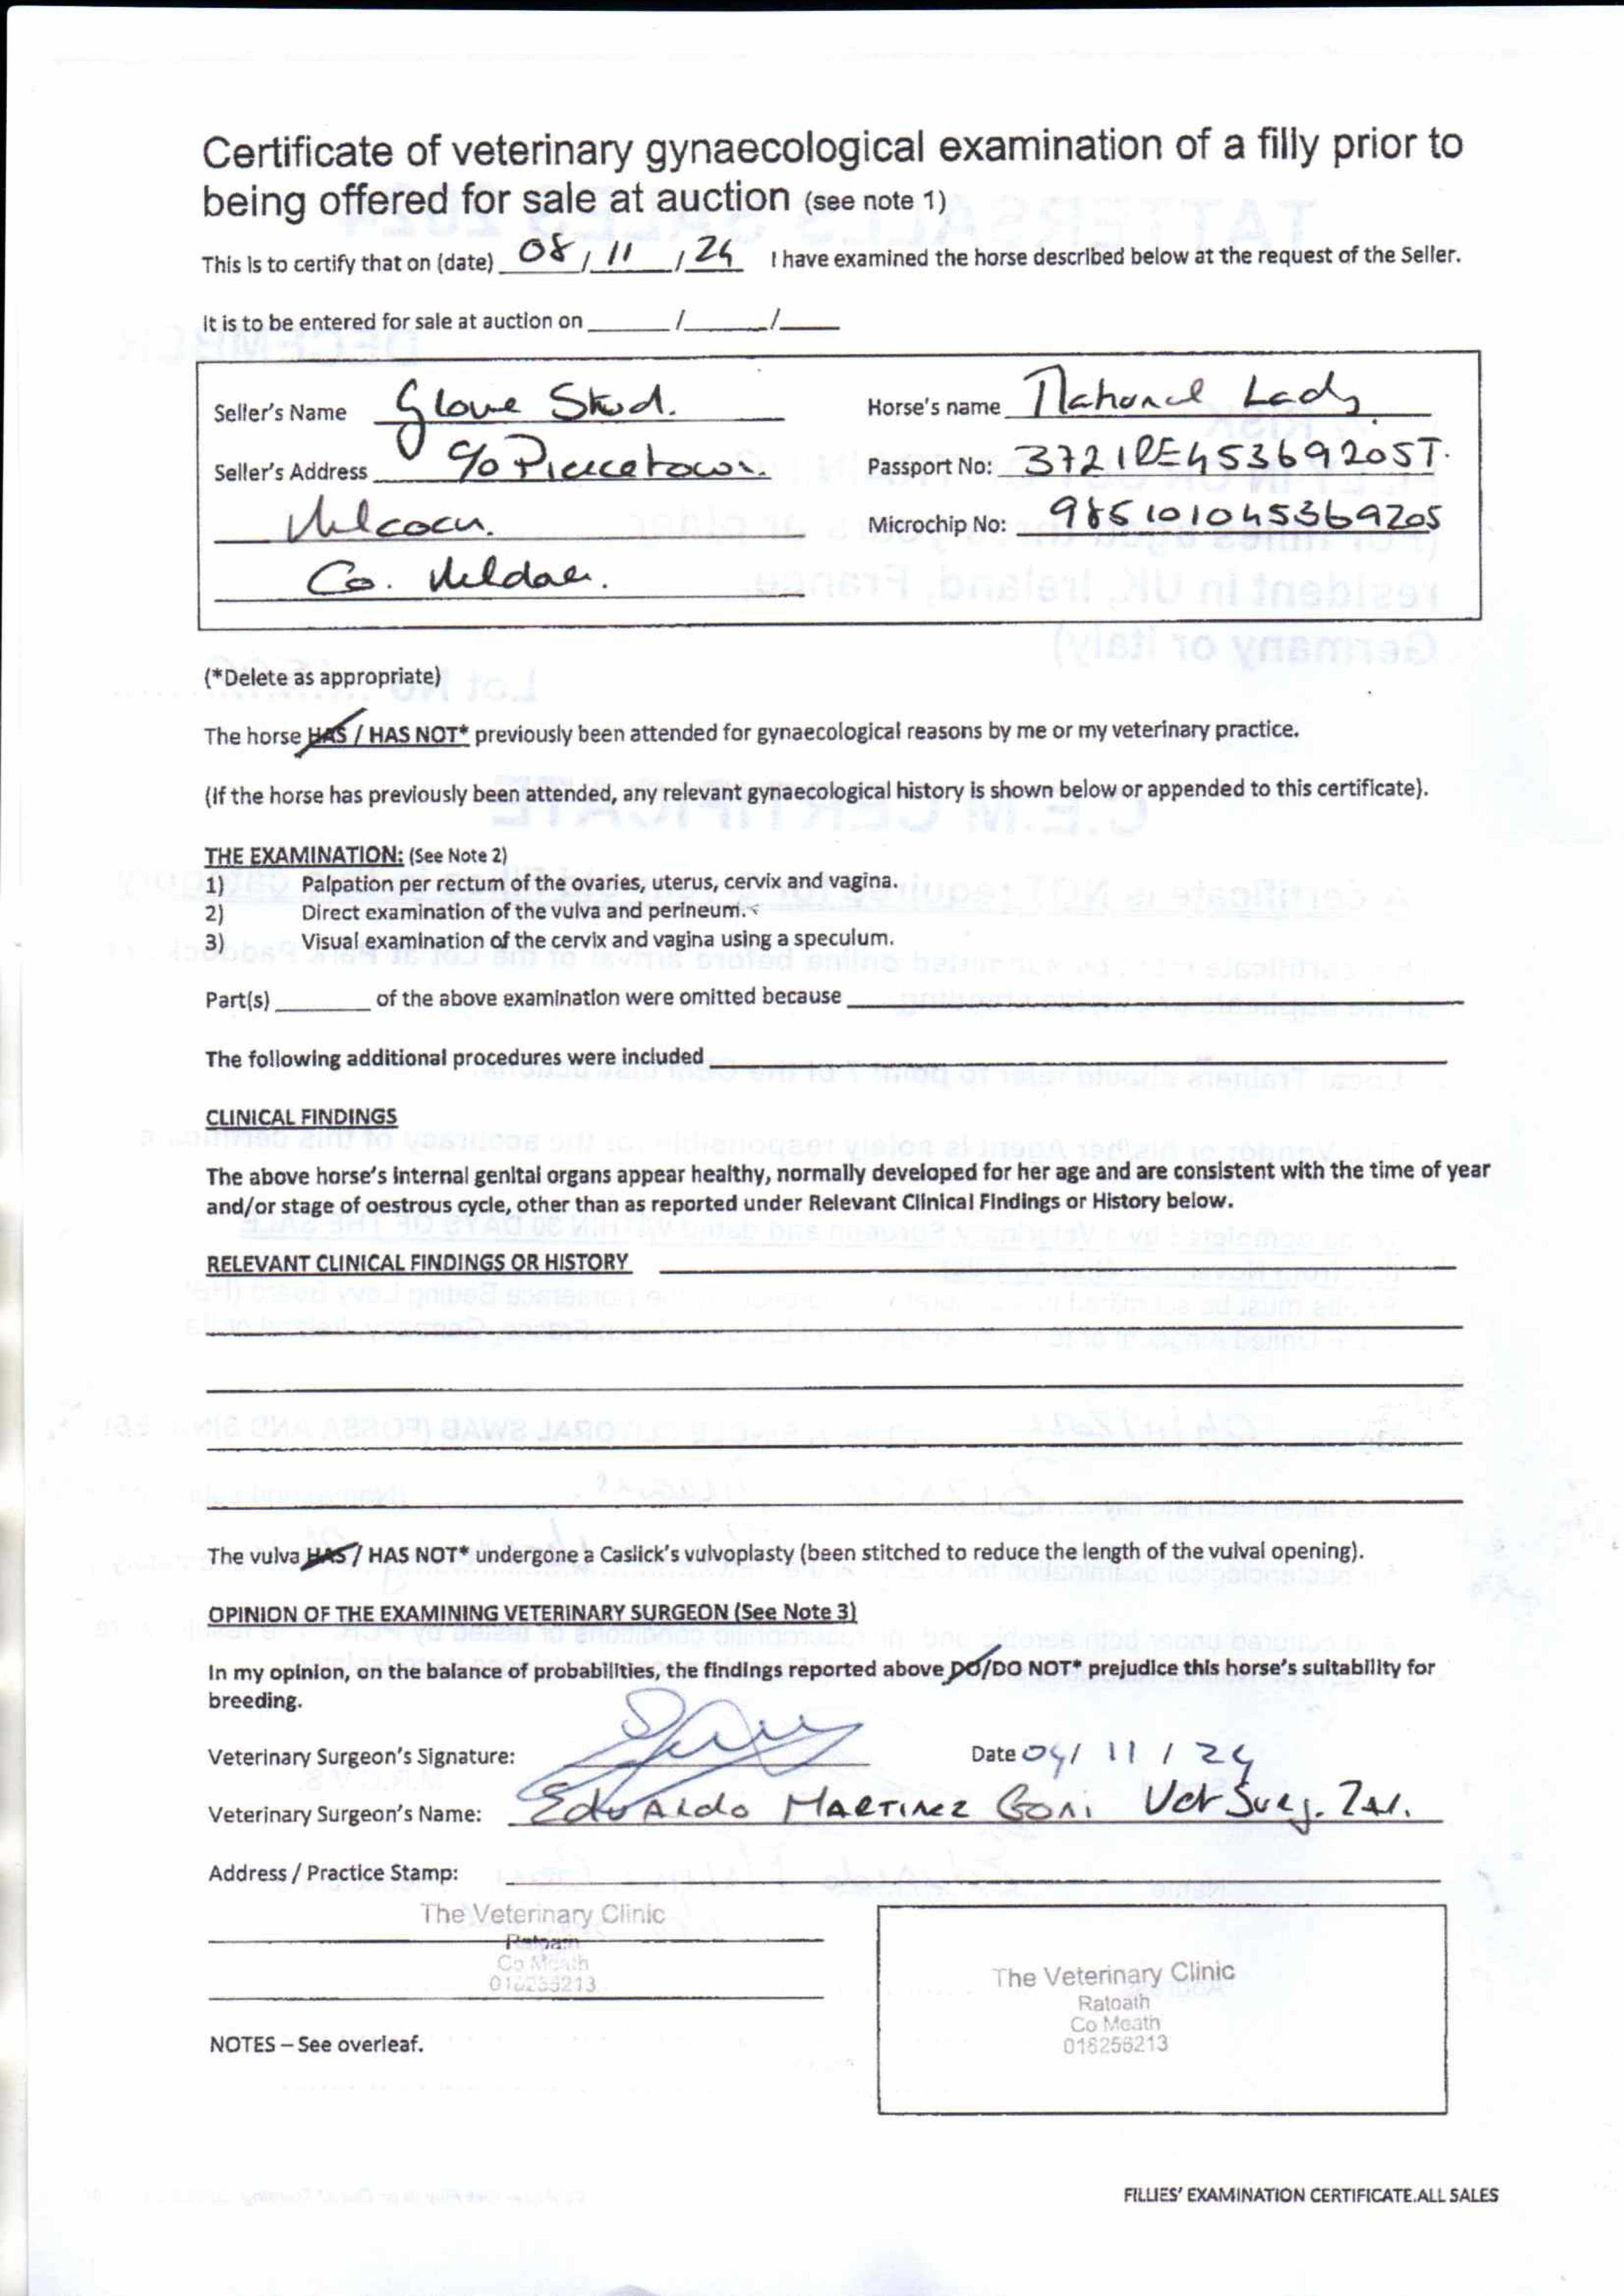 Certificate of veterinary gynaecological examination of a filly prior to
being offered for sale at auction (see note 1)
This is to certify that on (date) 08 / 11 / 24 I have examined the horse described below at the request of the Seller.
It is to be entered for sale at auction on ____ / ____ / ____
Seller's Name Glove Stud.
Horse's name National Lady
Seller's Address c/o Piercetown.
Passport No: 372IRE45369205T.
Kilcock.
Microchip No: 985101045369205
Co. Kildare.
(*Delete as appropriate)
The horse HAS / HAS NOT* previously been attended for gynaecological reasons by me or my veterinary practice.
(If the horse has previously been attended, any relevant gynaecological history is shown below or appended to this certificate).
THE EXAMINATION: (See Note 2)
1) Palpation per rectum of the ovaries, uterus, cervix and vagina.
2) Direct examination of the vulva and perineum.
3) Visual examination of the cervix and vagina using a speculum.
Part(s) ____ of the above examination were omitted because
The following additional procedures were included
CLINICAL FINDINGS
The above horse's internal genital organs appear healthy, normally developed for her age and are consistent with the time of year
and/or stage of oestrous cycle, other than as reported under Relevant Clinical Findings or History below.
RELEVANT CLINICAL FINDINGS OR HISTORY
The vulva HAS / HAS NOT* undergone a Caslick's vulvoplasty (been stitched to reduce the length of the vulval opening).
OPINION OF THE EXAMINING VETERINARY SURGEON (See Note 3)
In my opinion, on the balance of probabilities, the findings reported above DO/DO NOT* prejudice this horse's suitability for
breeding.
Veterinary Surgeon's Signature:
Date 04/ 11 / 24
Veterinary Surgeon's Name: Eduardo Martinez Goni Vet Surg.
Address / Practice Stamp:
The Veterinary Clinic
Ratoath
Co Meath
018256213
The Veterinary Clinic
Ratoath
Co Meath
018256213
NOTES – See overleaf.
FILLIES' EXAMINATION CERTIFICATE.ALL SALES